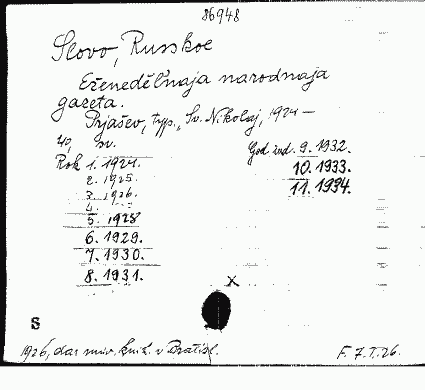 86948
Slovo, Russkoe
Eženedělʹnaja narodnaja
gazeta.
Prjašev, typ. Sv. Nikolaj, 1924 —
4°, sv.
Rok 1. 1924. God izd. 9. 1932.
2. 1925. 10. 1933.
3. 1926. 11. 1934.
4. - - -
5. 1928
6. 1929.
7. 1930.
8. 1931.
X
S
1926, dar univ. knih. v Bratisl. F. 7. I. 26.